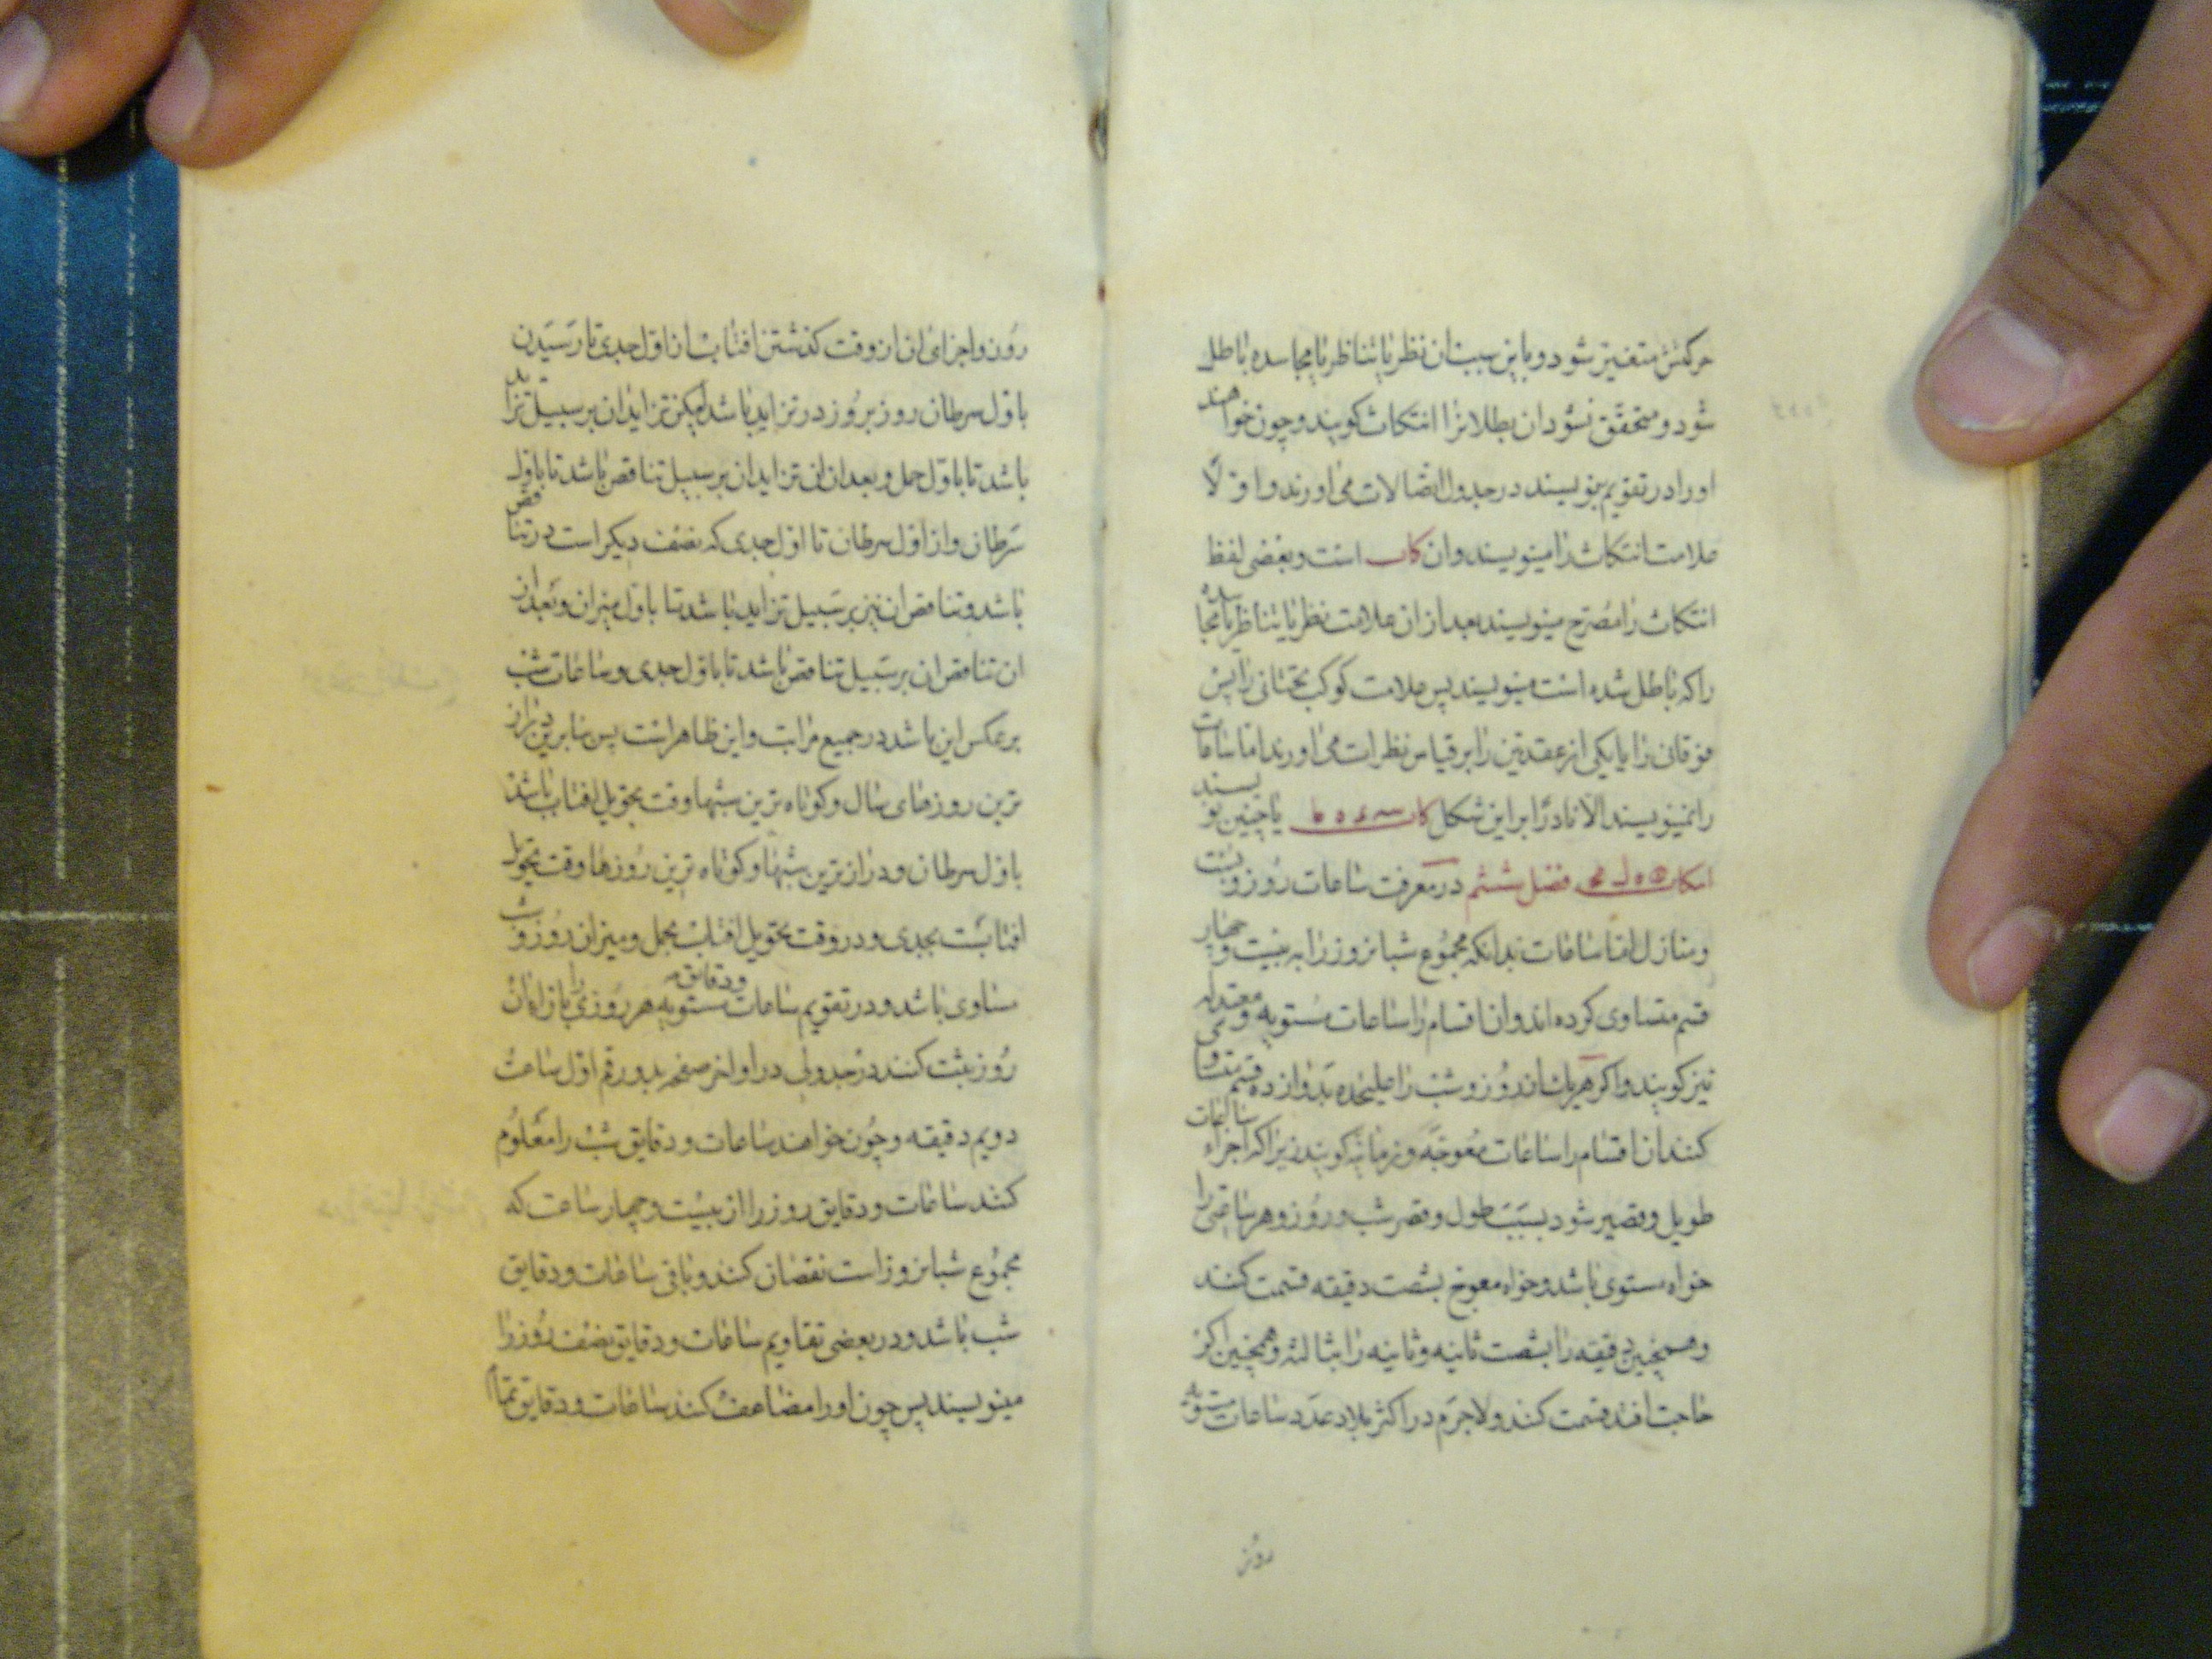 حرکتش متغیر شود و باین سبب ان نظر یا تناظر یا مجاسده باطل
شود و متحقق نشود ان بطلانرا انتکاث کویند و چون خواهند
اورا در تقویم بنویسند در جدول اتصالات می اورند و اولا
علامت انتکاث را مینویسند وان کاث است و بعضی لفظ
انتکاث را مصرح مینویسند بعد از ان علامت نظر یا تناظر یا مجاسده
راکه باطل شده است مینویسند پس علامت کوکب تحتانی را پس
فوقانی را یا یکی از عقدتین را بر قیاس نظرات می اورند اما ساعات
را نمینویسند الا نادرا بر این شکل یا چنین نویسند
فصل ششم در معرفت ساعات روز و شب
و منازل اما ساعات بدانکه مجموع شبانروز را به بیست و چهار
قسم متساوی کرده اند وان اقسام را ساعات مستویه و معتدله
نیز کویند و اکر هر یک از روز و شب را علیحده بدوازده قسم متساوی
کنند ان اقسام را ساعات معوجه و زمانیه کویند زیرا که اجزاء ساعات
طویل و قصیر شود بسبب طول و قصر شب و روز و هر ساعتی را
خواه مستوی باشد و خواه معوج بشصت دقیقه قسمت کنند
و همچنین دقیقه را بشصت ثانیه و ثانیه را بثالثه و همچنین اکر
حاجت افتد قسمت کنند ولاجرم در اکثر بلاد عدد ساعات مستویه
روز
روز و اجزای ان از وقت کذشتن افتاب از اول جدی تا رسیدن
باول سرطان روز بروز در تزاید باشد لیکن تزاید ان بر سبیل تزاید
باشد تا باول حمل و بعد از ان تزاید ان بر سبیل تناقص باشد تا باول
سرطان و از اول سرطان تا اول جدی که نصف دیکر است در تناقص
باشد و تناقص ان نیز بر سبیل تزاید باشد تا باول میزان و بعد از
ان تناقص ان بر سبیل تناقص باشد تا باول جدی و ساعات شب
بر عکس این باشد در جمیع مراتب و این ظاهر است پس بنا برین دراز
ترین روزهای سال و کوتاه ترین شبها وقت تحویل افتاب باشد
باول سرطان و دراز ترین شبها و کوتاه ترین روزها وقت تحویل
افتابست بجدی و در وقت تحویل افتاب بحمل و میزان روز و شب
مساوی باشد و در تقویم ساعات و دقایق مستویه هر روزی را بازاء ان
روز ثبت کنند در جدولی در اواخر صفحه بدو رقم اول ساعت
دویم دقیقه و چون خواهند ساعات و دقایق شب را معلوم
کنند ساعات و دقایق روز را از بیست و چهار ساعت که
مجموع شبانروز است نقصان کنند و باقی ساعات و دقایق
شب باشد و در بعضی تقاویم ساعات و دقایق نصف روز را
مینویسند پس چون اورا مضاعف کنند ساعات و دقایق تمام